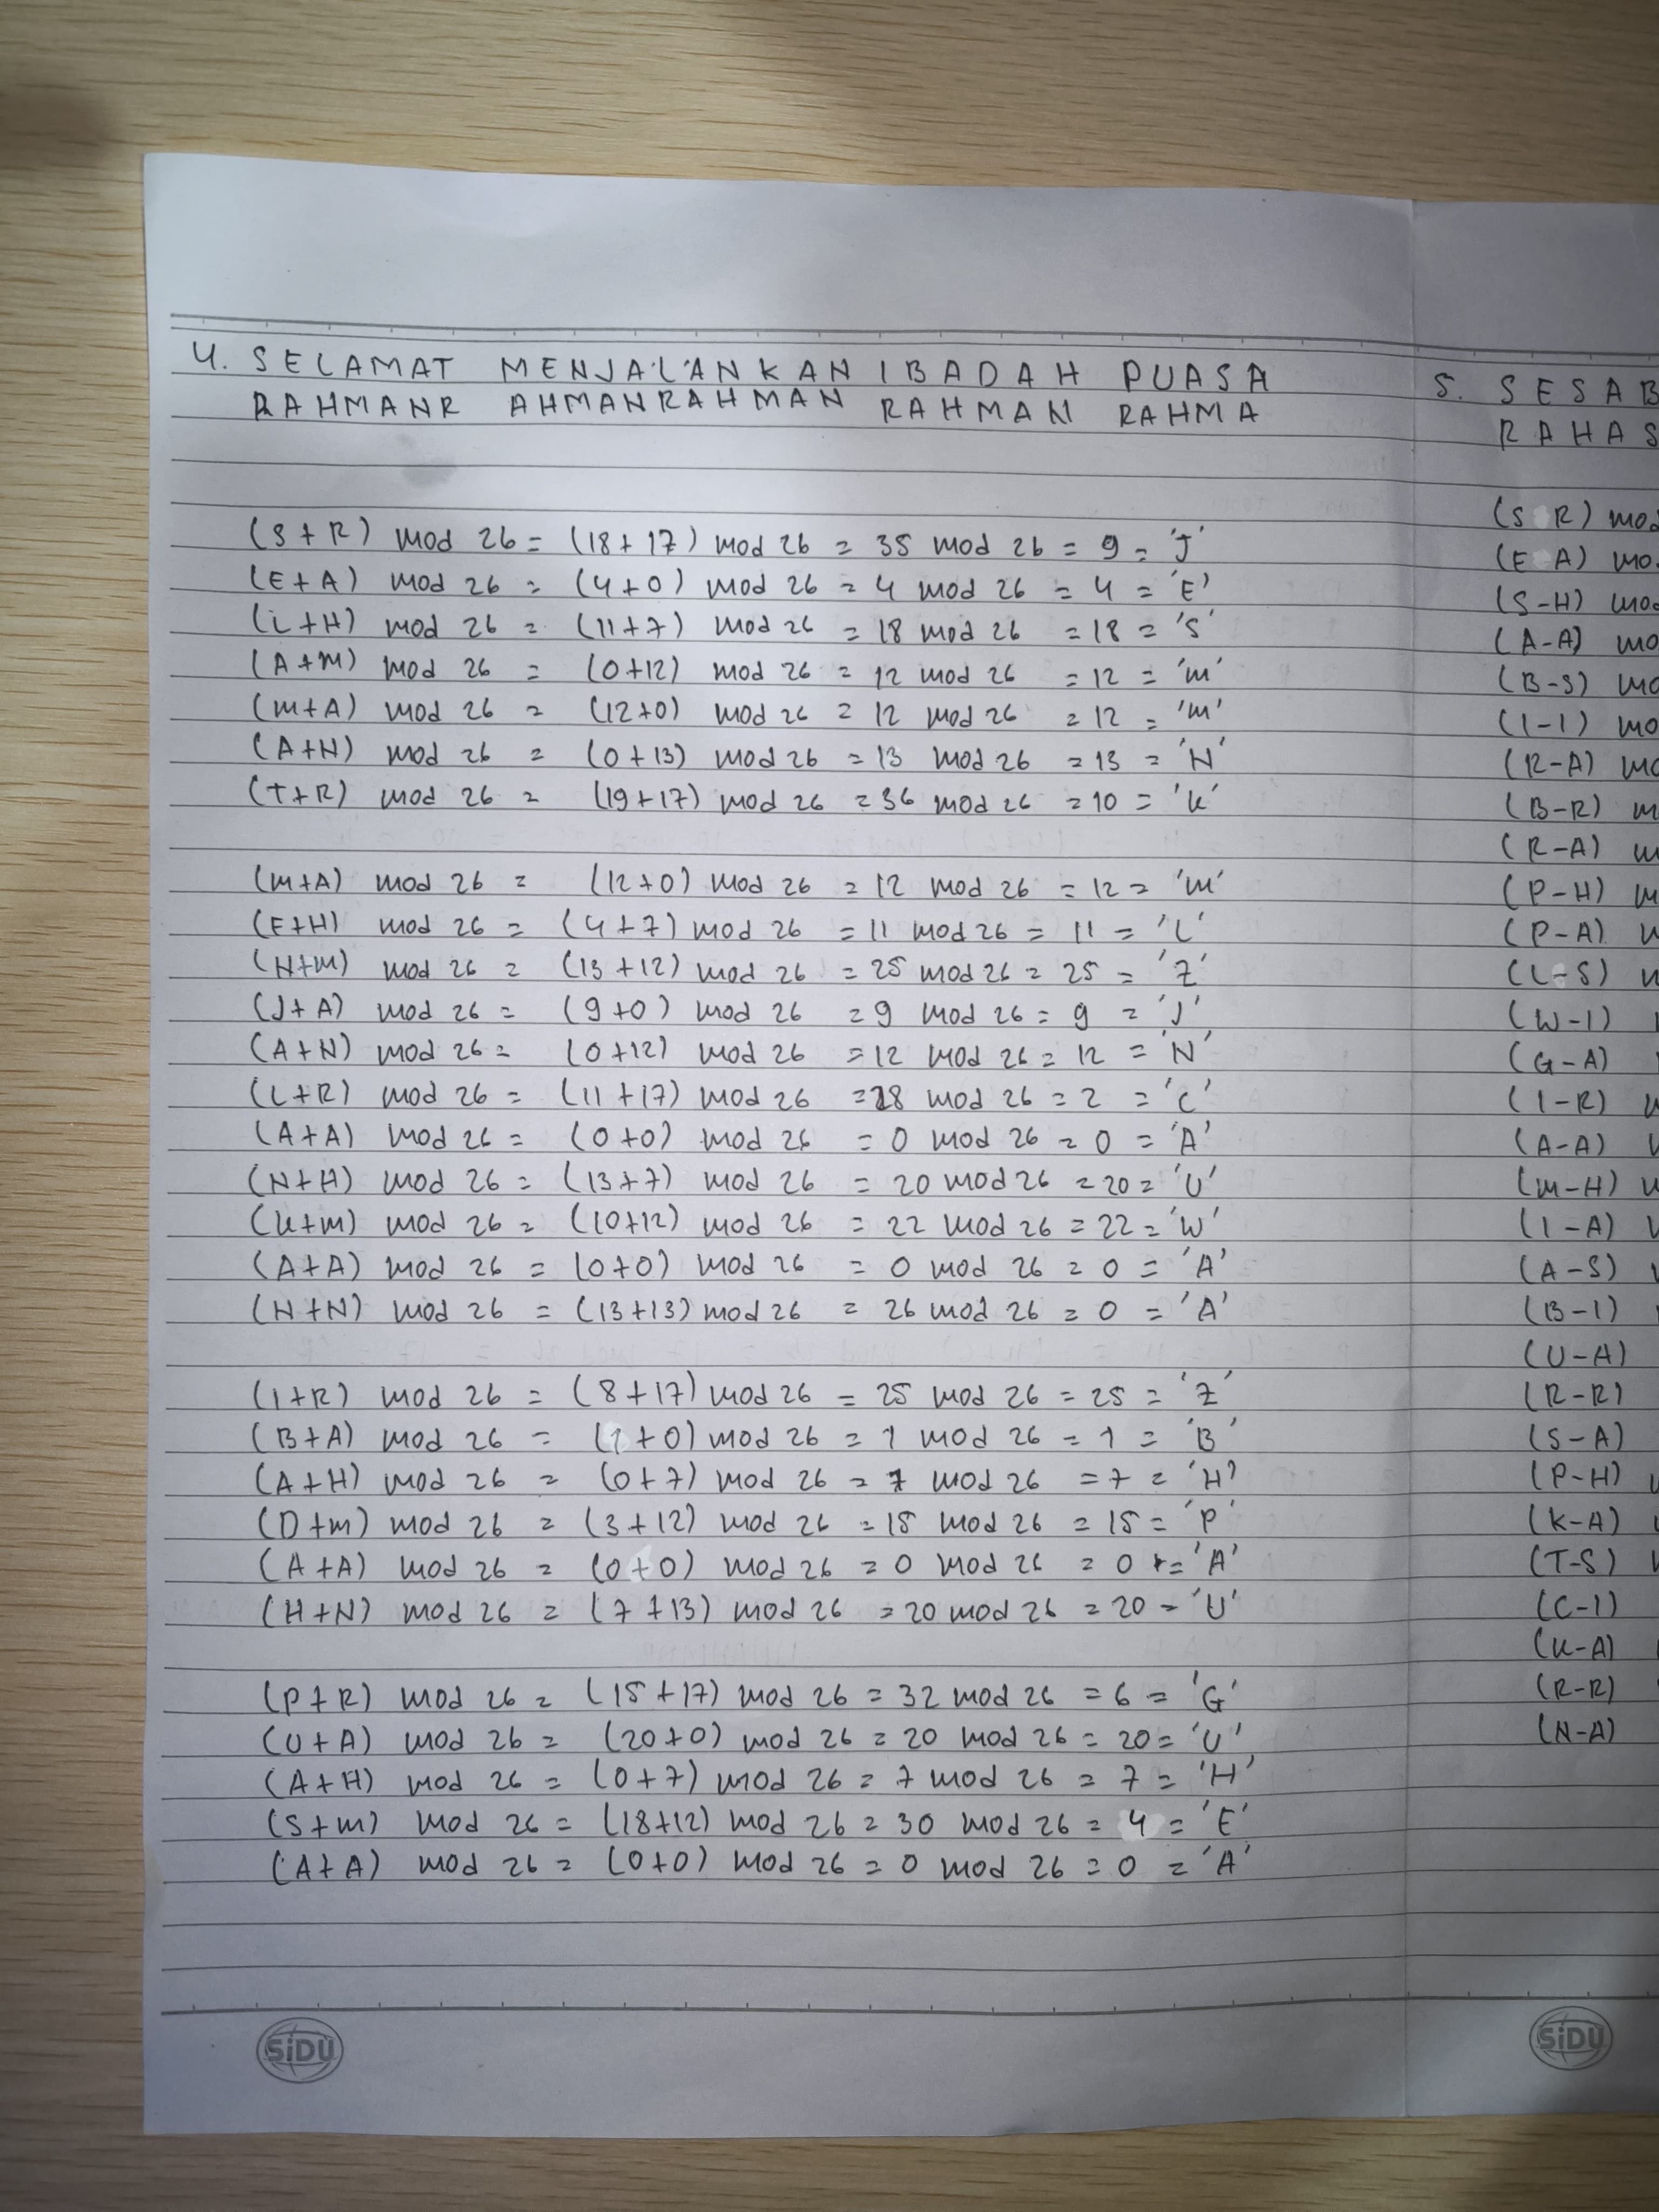 4. SELAMAT MENJALANKAN IBADAH PUASA
RAHMANR AHMANRAHMAN RAHMAN RAHMA
(S+R) mod 26 = (18+17) mod 26 = 35 mod 26 = 9 = 'J'
(E+A) mod 26 = (4+0) mod 26 = 4 mod 26 = 4 = 'E'
(L+H) mod 26 = (11+7) mod 26 = 18 mod 26 = 18 = 'S'
(A+M) mod 26 = (0+12) mod 26 = 12 mod 26 = 12 = 'M'
(M+A) mod 26 = (12+0) mod 26 = 12 mod 26 = 12 = 'M'
(A+N) mod 26 = (0+13) mod 26 = 13 mod 26 = 13 = 'N'
(T+R) mod 26 = (19+17) mod 26 = 36 mod 26 = 10 = 'K'
(M+A) mod 26 = (12+0) mod 26 = 12 mod 26 = 12 = 'M'
(E+H) mod 26 = (4+7) mod 26 = 11 mod 26 = 11 = 'L'
(N+M) mod 26 = (13+12) mod 26 = 25 mod 26 = 25 = 'Z'
(J+A) mod 26 = (9+0) mod 26 = 9 mod 26 = 9 = 'J'
(A+N) mod 26 = (0+12) mod 26 = 12 mod 26 = 12 = 'N'
(L+R) mod 26 = (11+17) mod 26 = 28 mod 26 = 2 = 'C'
(A+A) mod 26 = (0+0) mod 26 = 0 mod 26 = 0 = 'A'
(N+H) mod 26 = (13+7) mod 26 = 20 mod 26 = 20 = 'U'
(K+M) mod 26 = (10+12) mod 26 = 22 mod 26 = 22 = 'W'
(A+A) mod 26 = (0+0) mod 26 = 0 mod 26 = 0 = 'A'
(N+N) mod 26 = (13+13) mod 26 = 26 mod 26 = 0 = 'A'
(I+R) mod 26 = (8+17) mod 26 = 25 mod 26 = 25 = 'Z'
(B+A) mod 26 = (1+0) mod 26 = 1 mod 26 = 1 = 'B'
(A+H) mod 26 = (0+7) mod 26 = 7 mod 26 = 7 = 'H'
(D+M) mod 26 = (3+12) mod 26 = 15 mod 26 = 15 = 'P'
(A+A) mod 26 = (0+0) mod 26 = 0 mod 26 = 0 = 'A'
(H+N) mod 26 = (7+13) mod 26 = 20 mod 26 = 20 = 'U'
(P+R) mod 26 = (15+17) mod 26 = 32 mod 26 = 6 = 'G'
(U+A) mod 26 = (20+0) mod 26 = 20 mod 26 = 20 = 'U'
(A+H) mod 26 = (0+7) mod 26 = 7 mod 26 = 7 = 'H'
(S+M) mod 26 = (18+12) mod 26 = 30 mod 26 = 4 = 'E'
(A+A) mod 26 = (0+0) mod 26 = 0 mod 26 = 0 = 'A'
SiDU
5. SESAB
RAHAS
(S R) mod
(E A) mo
(S-H) mod
(A-A) mo
(B-S) mo
(I-I) mo
(R-A) mo
(B-R) m
(R-A) m
(P-H) m
(P-A)
(L-S)
(W-I)
(G-A)
(I-R)
(A-A)
(M-H)
(I-A)
(A-S)
(B-I)
(U-A)
(R-R)
(S-A)
(P-H)
(K-A)
(T-S)
(C-I)
(K-A)
(R-R)
(N-A)
SiDU